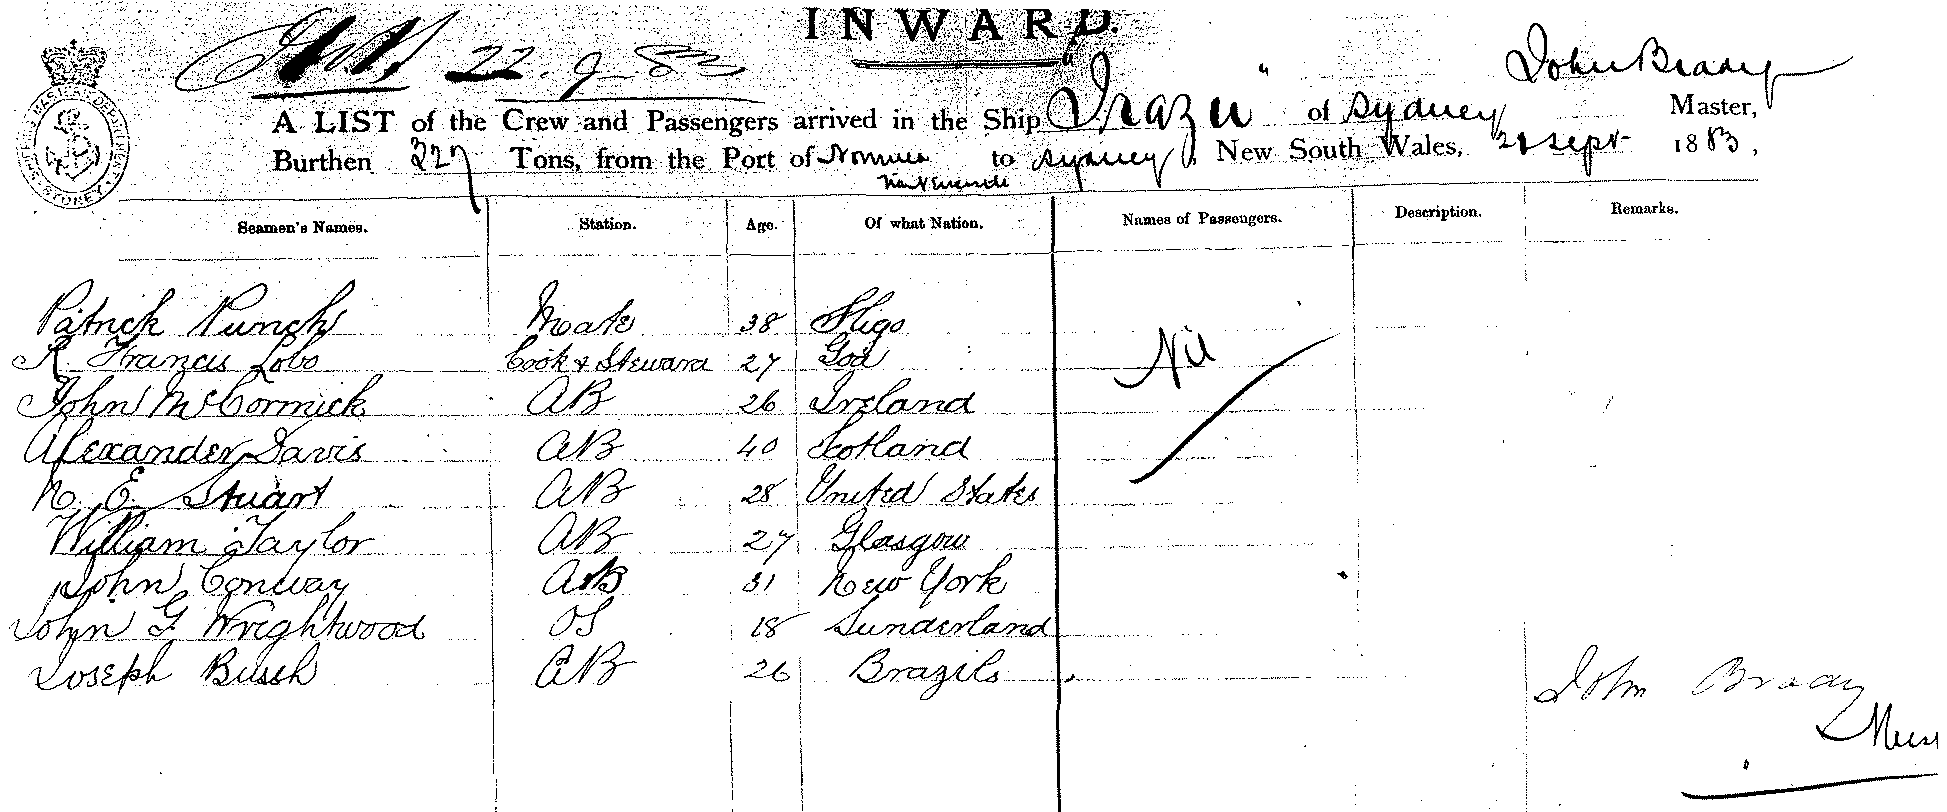 INWARD.
22.9.83
John Brady
A LIST of the Crew and Passengers arrived in the Ship "Irazu" of Sydney Master,
Burthen 327 Tons, from the Port of Noumea to Sydney, New South Wales, Sept 1883,
SHIPPING MASTERS DEPARTMENT SYDNEY
Seamen's Names. Station. Age. Of what Nation. Names of Passengers. Description. Remarks.
Patrick Punch Mate 38 Sligo
R Francis Lobo Cook & Steward 27 Goa Nil
John McCormick AB 26 Ireland
Alexander Davis AB 40 Scotland
N. E. Stuart AB 28 United States
William Taylor AB 27 Glasgow
John Conway AB 31 New York
John G. Wrightwood OS 18 Sunderland
Joseph Bush AB 26 Brazils
John Brady